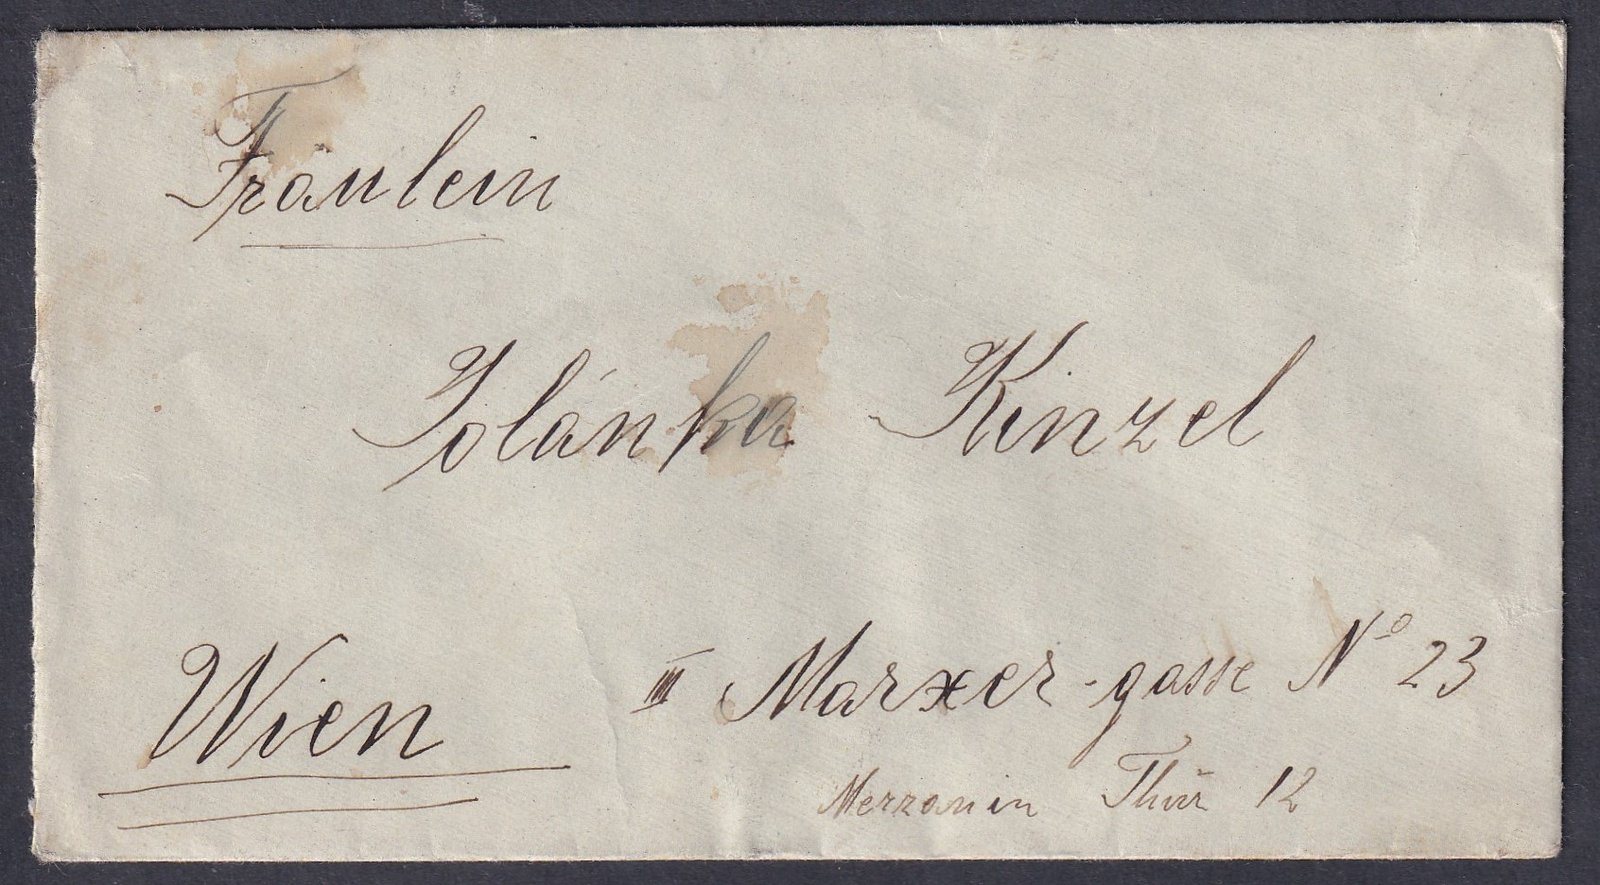 Fräulein
Jolánka Kinzel
Wien III Marxer-gasse Nº 23
Mezzanin Thür 12